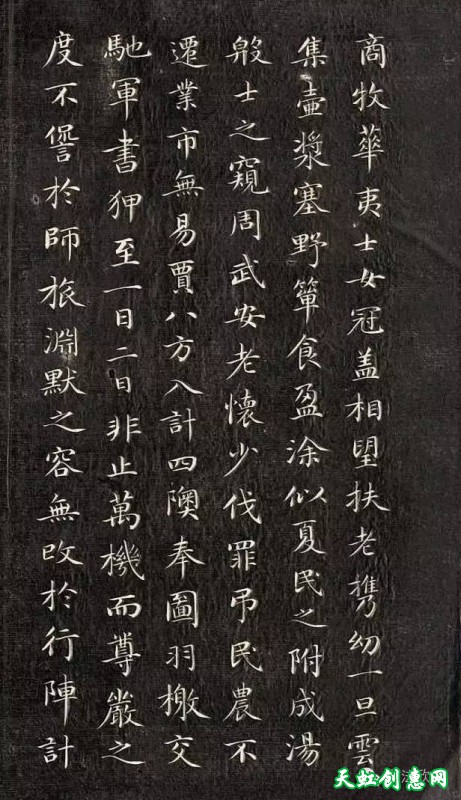 商牧華夷士女冠盖相望扶老攜幼一旦雲
集壺漿塞野簞食盈涂似夏民之附成湯
殷士之窺周武安老懷少伐罪弔民農不
遷業市無易賈八方入計四隩奉圖羽檄交
馳軍書狎至一日二日非止萬機而尊嚴之
度不諐於師旅淵默之容無改於行陣計
天虹创意网